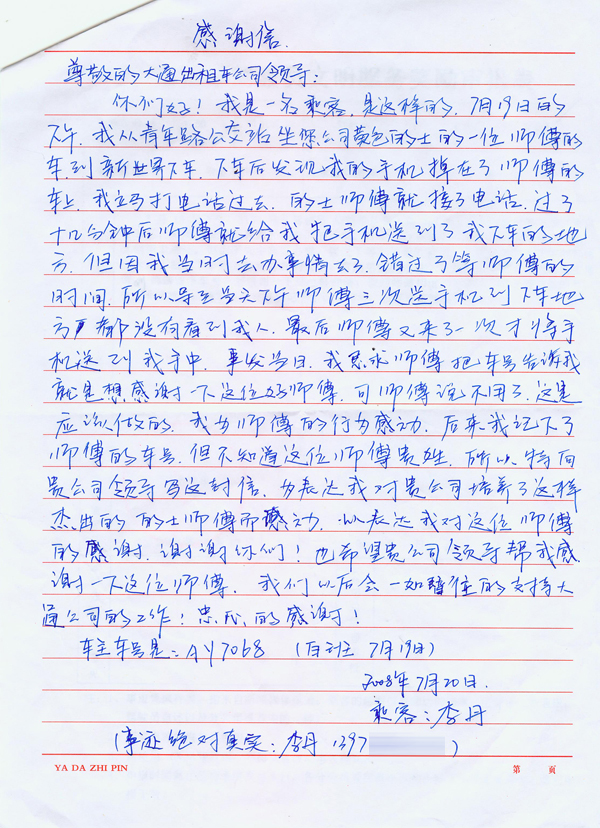 感谢信.
尊敬的大通出租车公司领导:
你们好! 我是一名乘客, 是这样的, 7月19日的
下午, 我从青年路公交站坐您公司黄色的士的一位师傅的
车到新世界下车, 下车后发现我的手机掉在了师傅的
车上, 我立马打电话过去, 的士师傅就接了电话, 过了
十几分钟后师傅就给我把手机送到了我下车的地
方, 但因我当时去办事情去了, 错过了等师傅的
时间, 所以导至当天下午师傅三次送手机到下车地
方都没有看到我人, 最后师傅又来了一次才将手
机送到我手中, 事发当日, 我恳求师傅把车号告诉我
就是想感谢一下这位好师傅, 可师傅说不用了, 这是
应该做的, 我为师傅的行为感动, 后来我记下了
师傅的车号, 但不知道这位师傅贵姓, 所以特向
贵公司领导写这封信, 为表达我对贵公司培养了这样
杰出的的士师傅而感动, 以表达我对这位师傅
的感谢, 谢谢你们! 也希望贵公司领导帮我感
谢一下这位师傅, 我们以后会一如暨往的支持大
通公司的工作! 忠心的感谢!
车主车号是: AY7068 (白班 7月19日)
2008年7月20日.
乘客: 李丹
(事迹绝对真实: 李丹 1397 )
YA DA ZHI PIN 第 页